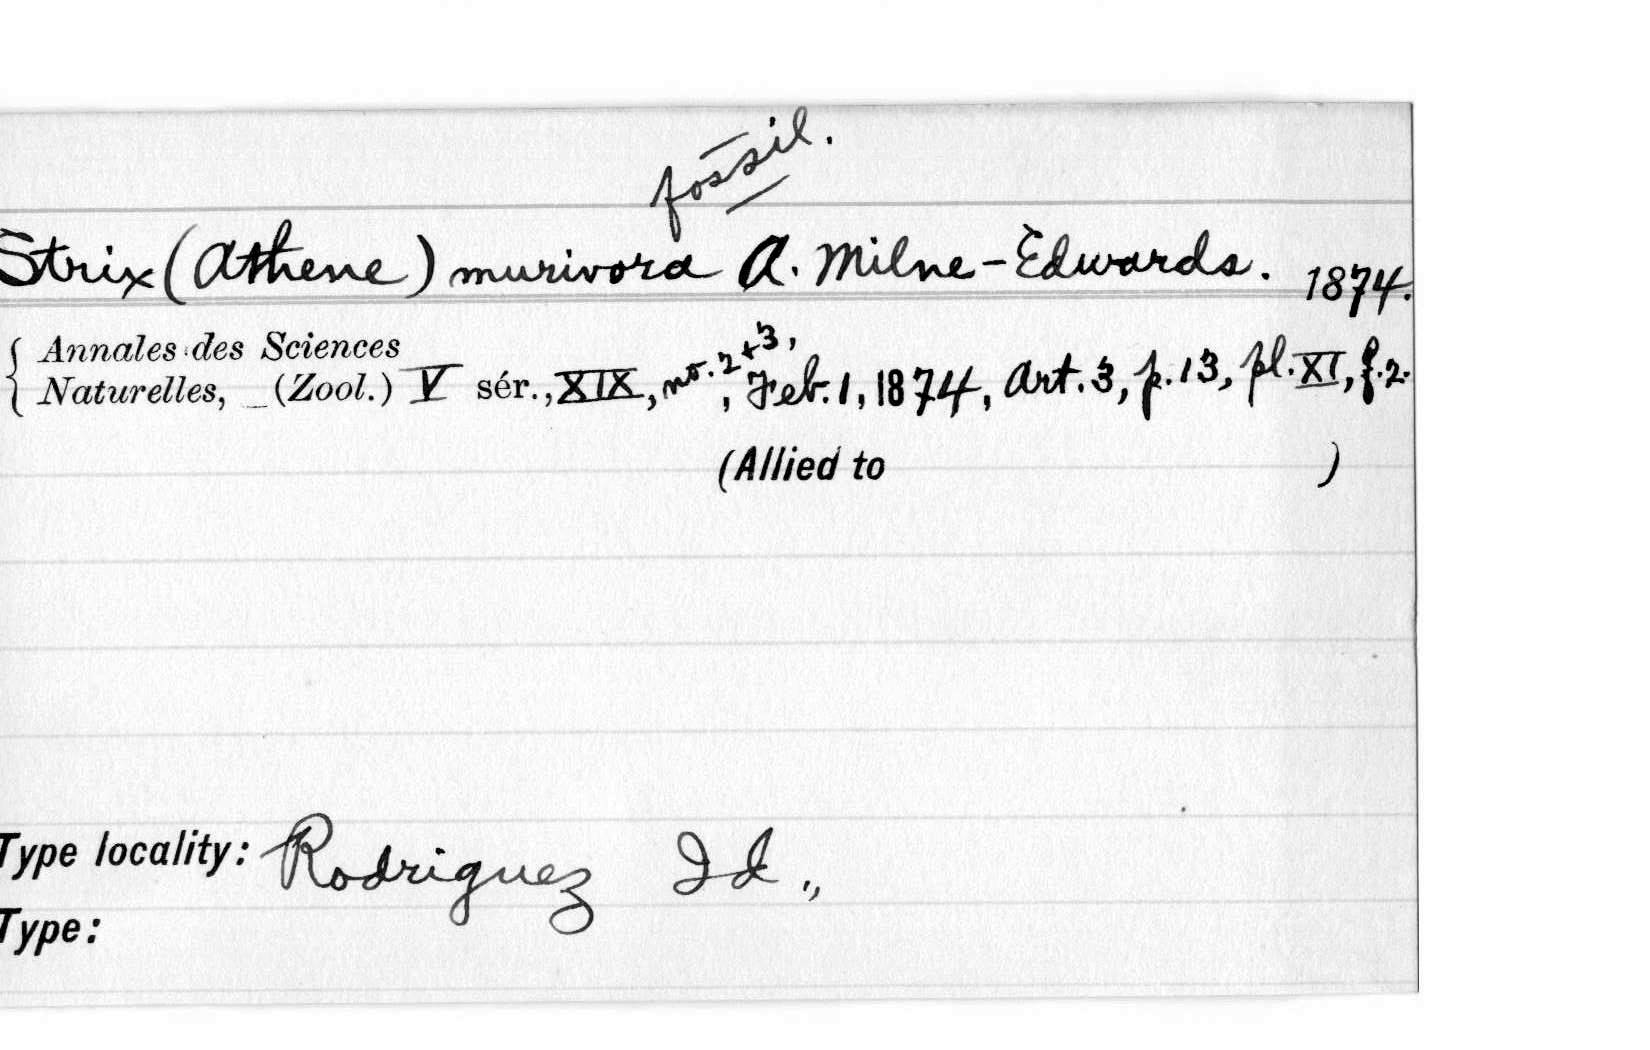 fossil.
Strix (Athene) murivora A. Milne-Edwards. 1874.
Annales des Sciences
Naturelles, _(Zool.) V sér., XIX, no. 2+3, Feb. 1, 1874, Art. 3, p. 13, pl. XI, f. 2.
(Allied to )
Type locality: Rodriguez Id.,,
Type: